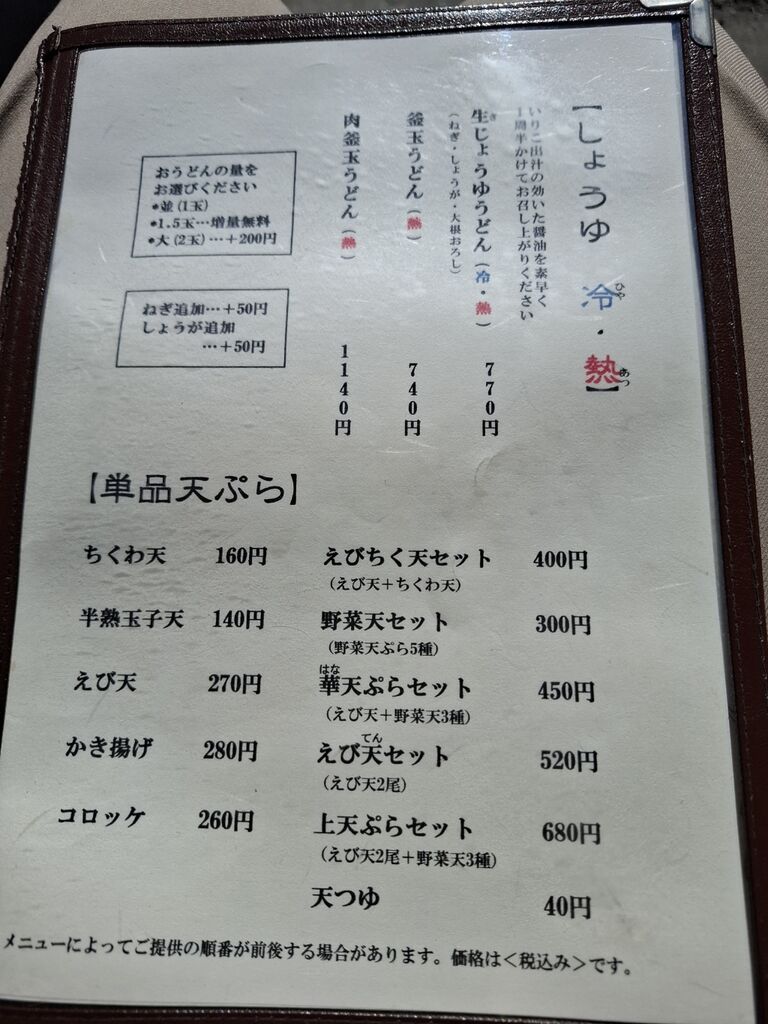 【しょうゆ 冷・熱】
ひや
あつ
いりこ出汁の効いた醤油を素早く
1周半かけてお召し上がりください
生じょうゆうどん(冷・熱) 770円
き
(ねぎ・しょうが・大根おろし)
釜玉うどん(熱) 740円
肉釜玉うどん(熱) 1140円
おうどんの量を
お選びください
•並(1玉)
•1.5玉…増量無料
•大(2玉)…+200円
ねぎ追加…+50円
しょうが追加
…+50円
【単品天ぷら】
ちくわ天 160円
半熟玉子天 140円
えび天 270円
かき揚げ 280円
コロッケ 260円
えびちく天セット 400円
(えび天+ちくわ天)
野菜天セット 300円
(野菜天ぷら5種)
はな
華天ぷらセット 450円
(えび天+野菜天3種)
てん
えび天セット 520円
(えび天2尾)
上天ぷらセット 680円
(えび天2尾+野菜天3種)
天つゆ 40円
メニューによってご提供の順番が前後する場合があります。価格は<税込み>です。